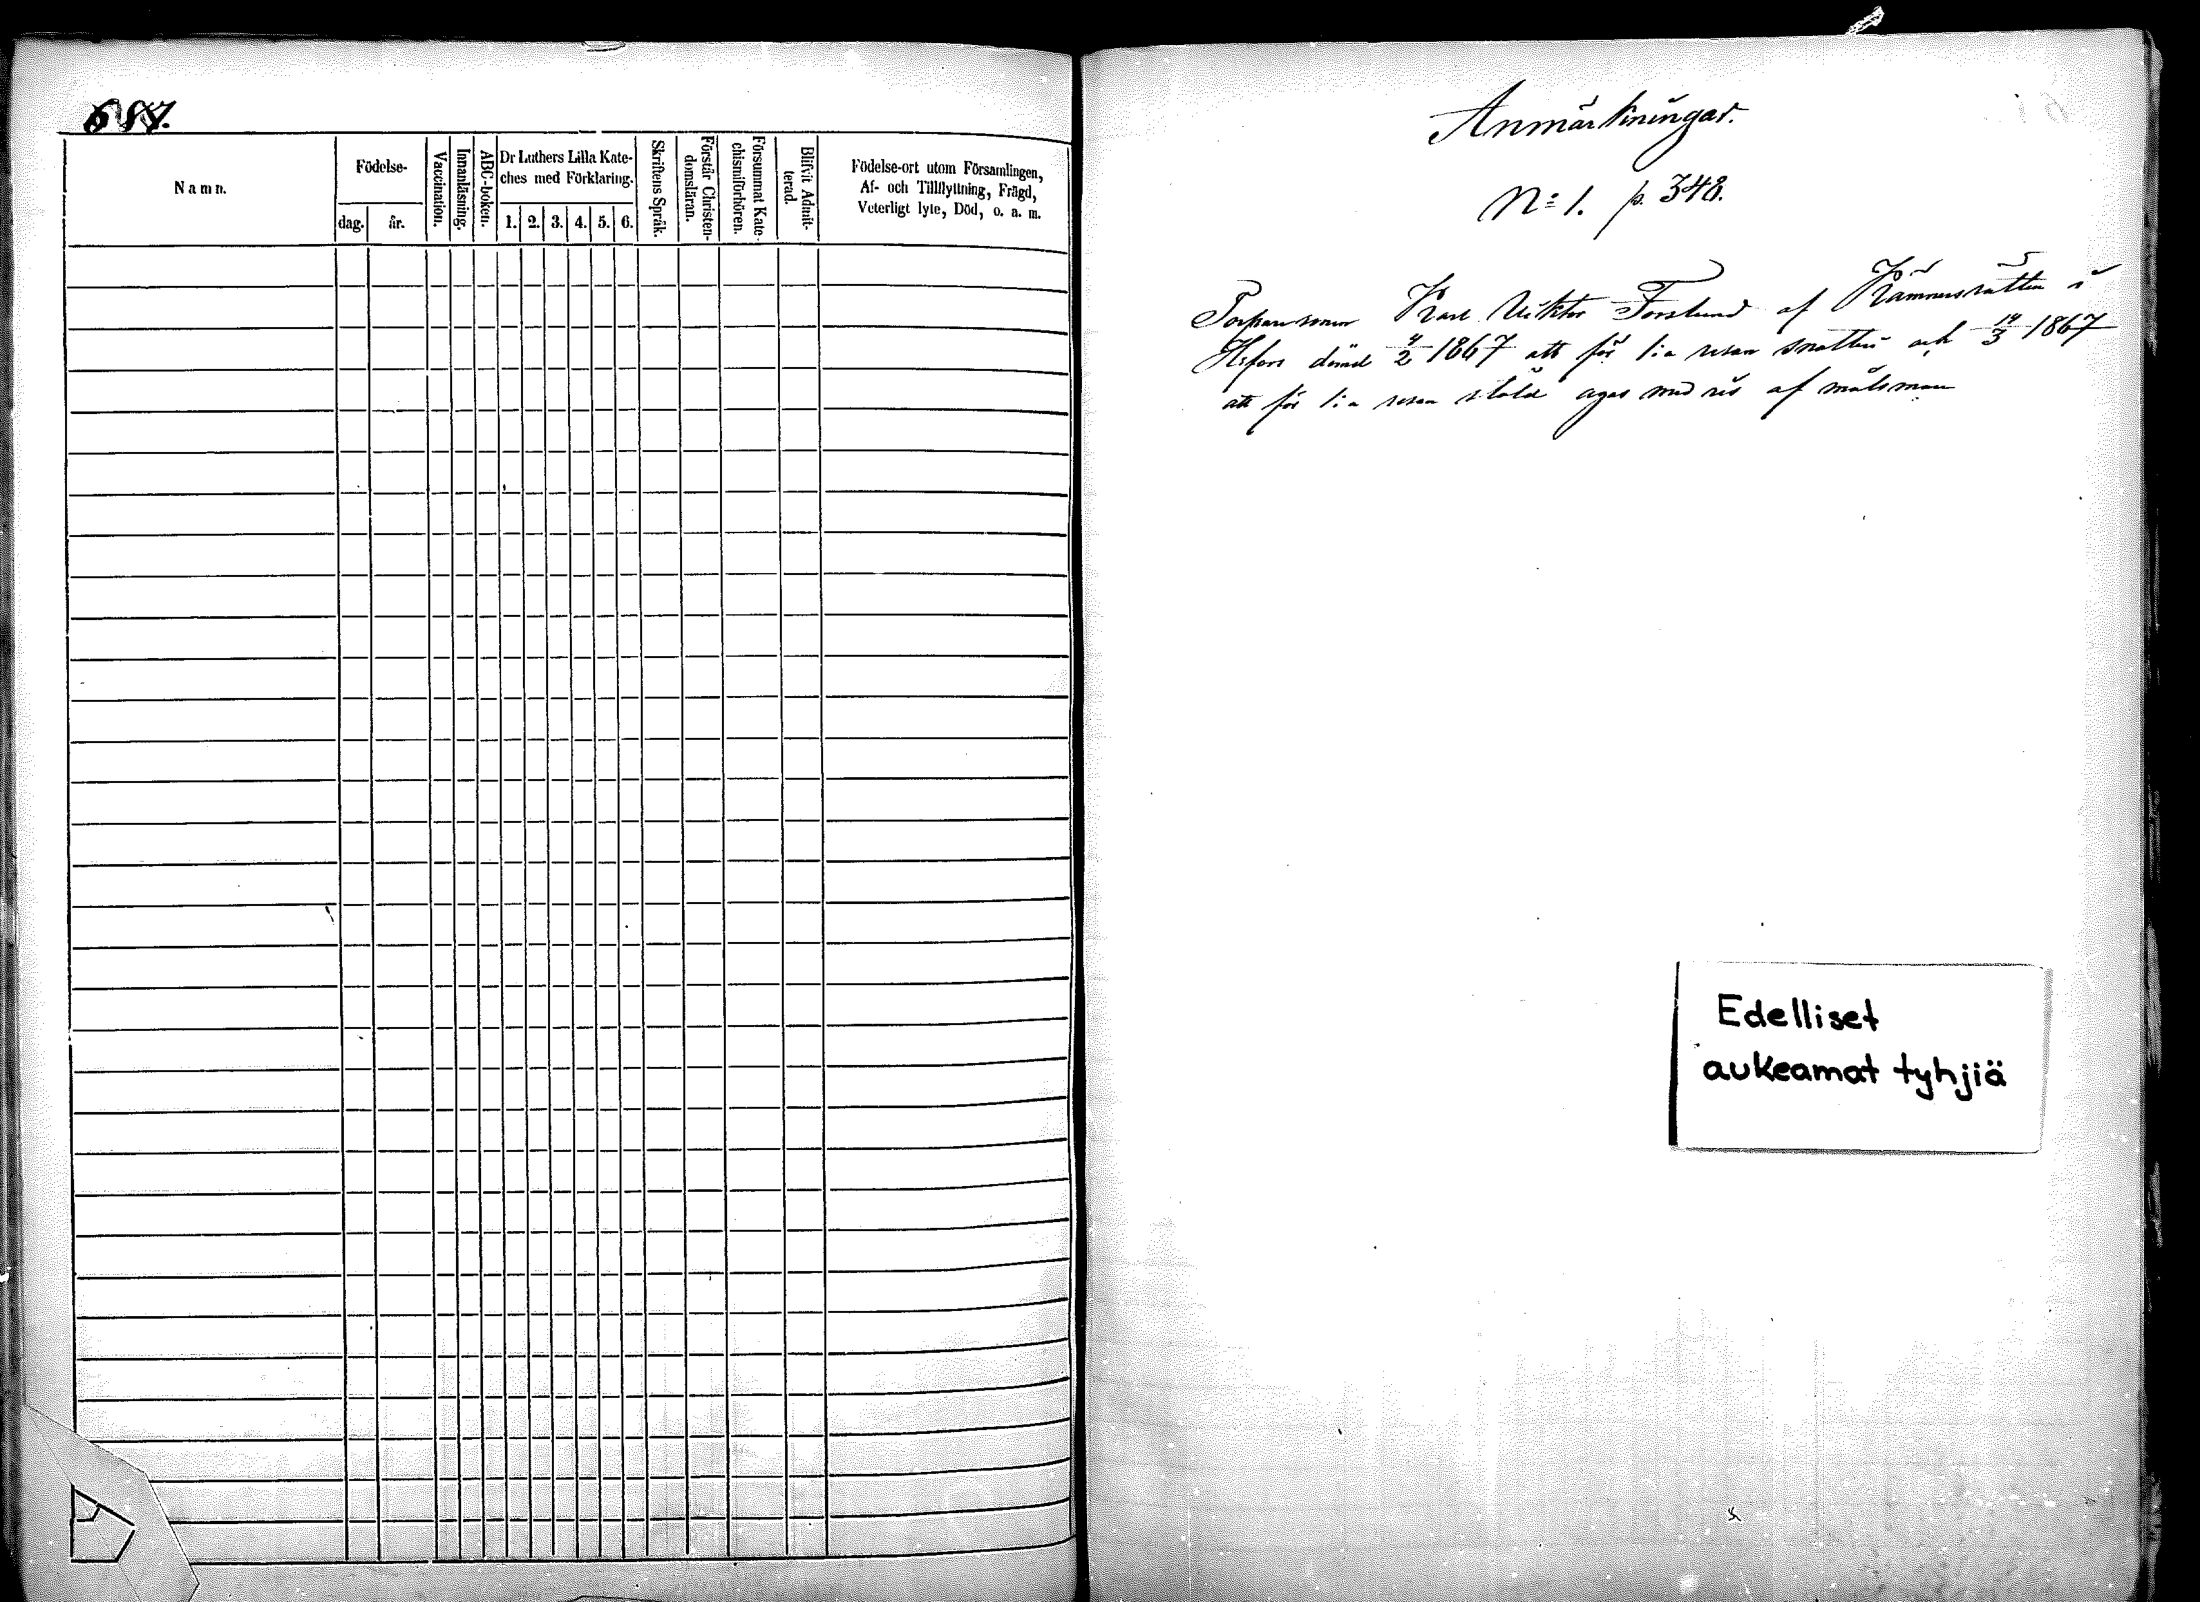 687.
Namn.
Födelse-
dag.
år.
Vaccination.
Innanläsning.
ABC-boken.
Dr Luthers Lilla Kate-
ches med Förklaring.
1. 2. 3. 4. 5. 6.
Skriftens Språk.
Förstår Christen-
domsläran.
Försummat Kate-
chismiförhören.
Blifvit Admit-
terad.
Födelse-ort utom Församlingen,
Af- och Tillflyttning, Frägd,
Veterligt lyte, Död, o. a. m.
Anmärkningar.
N:o 1. p. 348.
Torparsonen Karl Viktor Forslund af Kämnersrätten i
H:fors dömd 4/2 1867 att för 1:a resan snatteri och 14/3 1867
att för 1:a resan stöld agas med ris af målsman
Edelliset
aukeamat tyhjiä